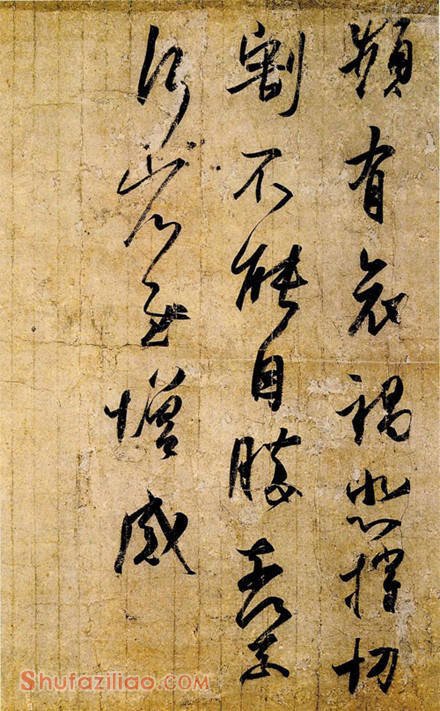 頻有哀禍悲摧切
割不能自勝奈何
奈何省慰增感
Shufaziliao.com